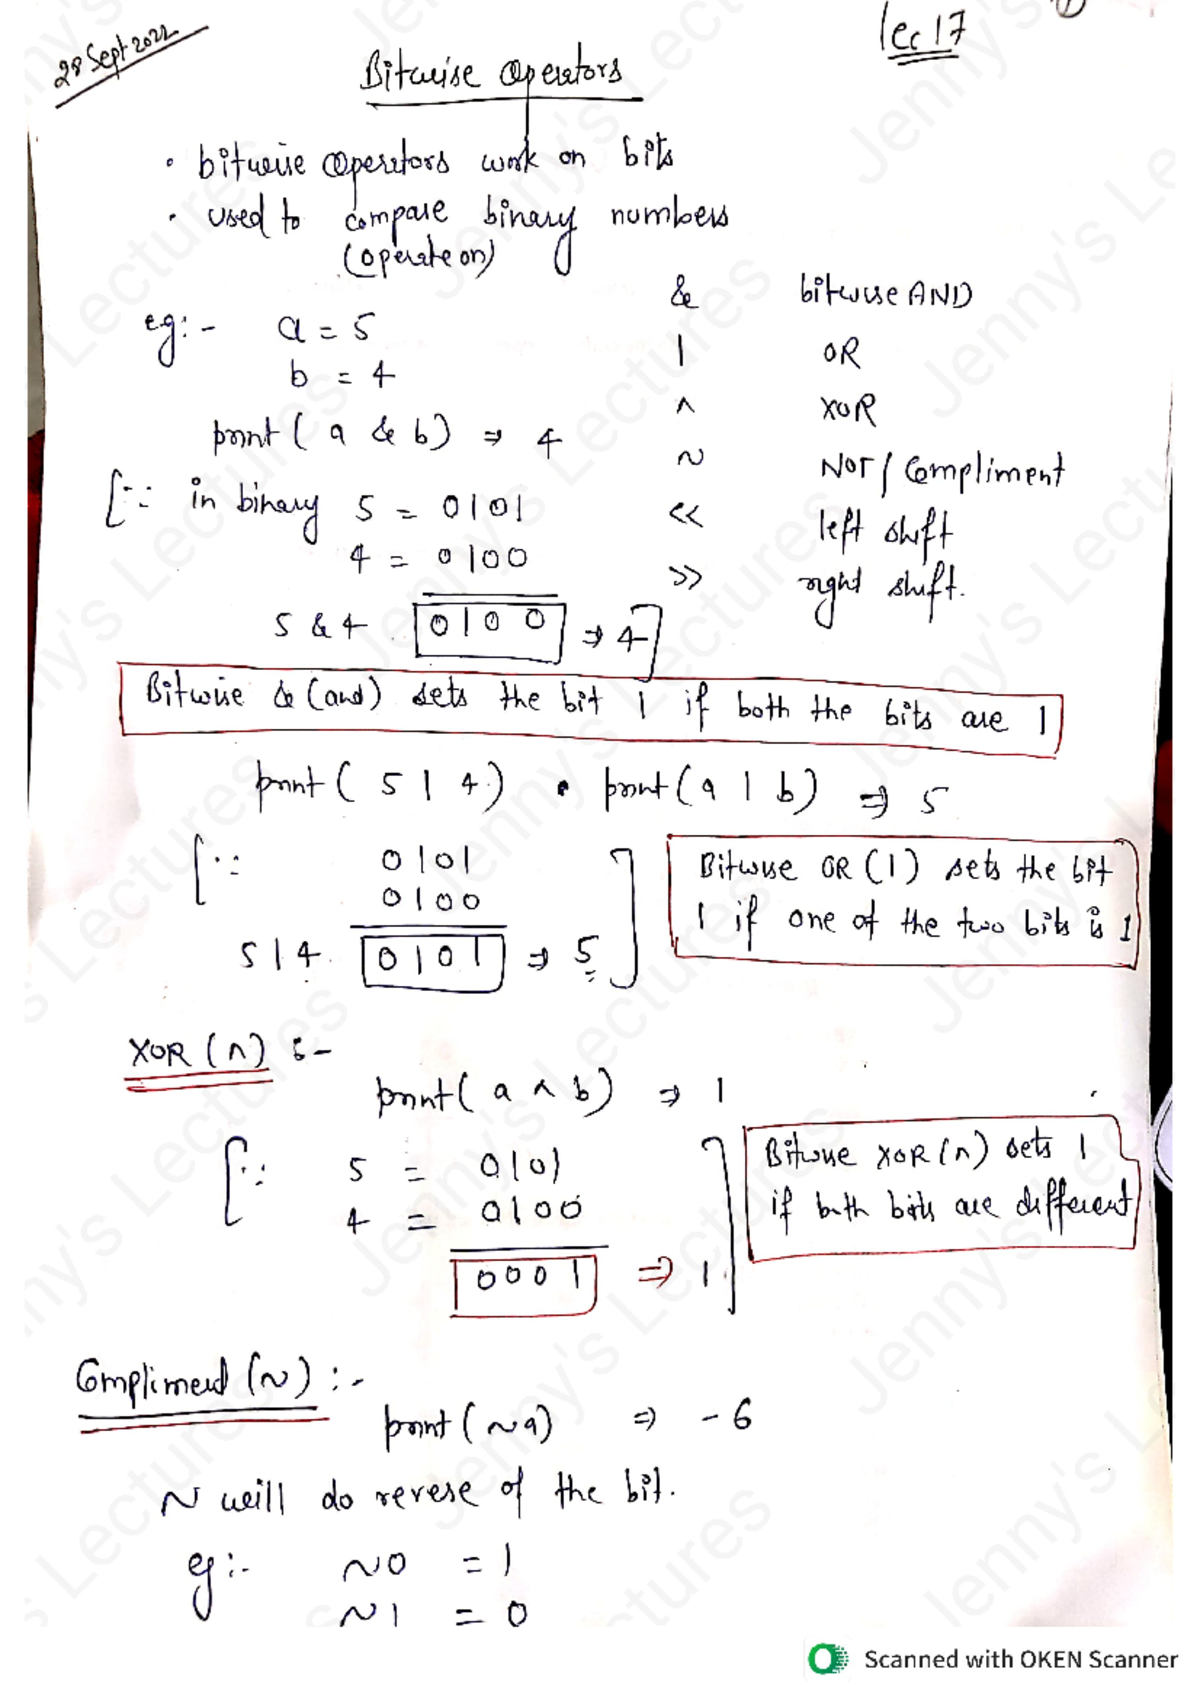 28 Sept 2022
lec 17
①
Bitwise Operators
• bitwise operators work on bits
• used to compare binary numbers
(operate on)
& bitwise AND
eg:- a = 5
| OR
b = 4
^ XOR
print ( a & b) ⇒ 4
~ NOT / Compliment
[∵ in binary 5 = 0101
<< left shift
4 = 0100
>> right shift.
5 & 4 0100 ⇒ 4]
Bitwise & (and) sets the bit 1 if both the bits are 1
print ( 5 | 4 ) • print (a | b) ⇒ 5
[∵ 0101
0100
5 | 4 0101 ⇒ 5]
Bitwise OR (|) sets the bit
1 if one of the two bits is 1
XOR (^) :-
print( a ^ b) ⇒ 1
[∵ 5 = 0101
4 = 0100
0001 ⇒ 1]
Bitwise XOR (^) sets 1
if both bits are different
Compliment (~) :-
print (~a) ⇒ -6
~ will do reverse of the bit.
eg:- ~0 = 1
~1 = 0
Jenny's Lectures
Scanned with OKEN Scanner